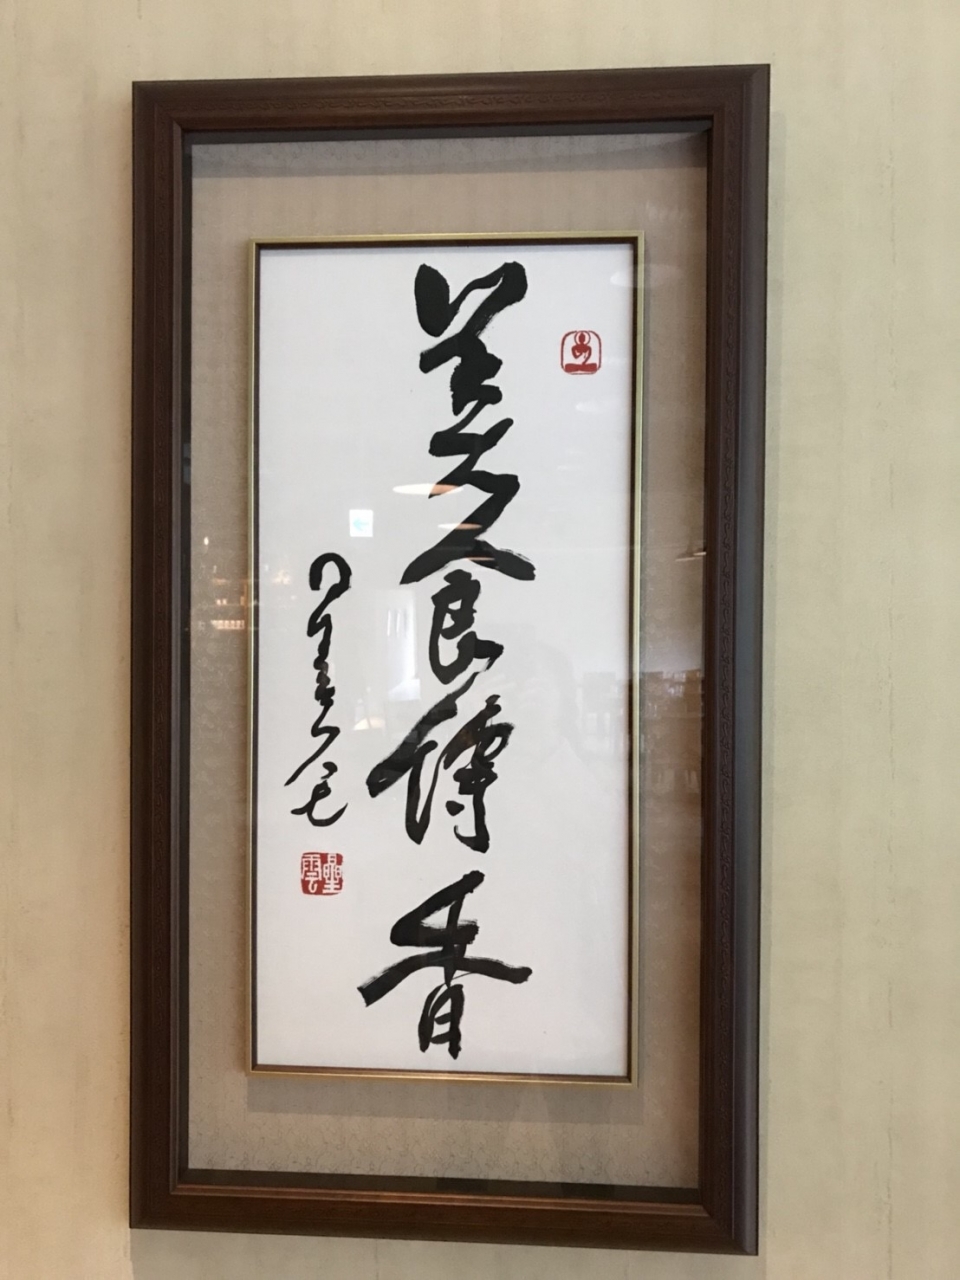 美食傳香
星雲
星雲